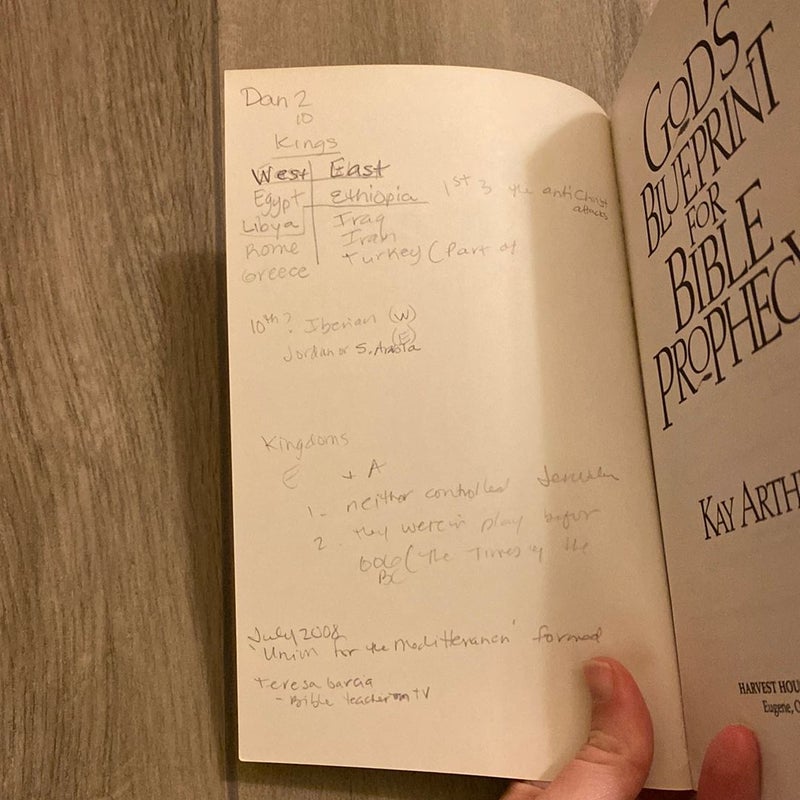 Dan 2
10
Kings
West East
Egypt Ethiopia 1st 3 the antiChrist
attacks
Libya Iraq
Iran
Rome Turkey (Part of
Greece
10th? Iberian (W)
(E)
Jordan or S. Arabia
Kingdoms
E + A
1- neither controlled
2. they were in play befor
606 (the Times of the
BC
July 2008
'Union for the Mediterranean' formed
Teresa
- Bible Teacher on TV
GOD'S
BLUEPRINT
FOR
BIBLE
PROPHECY
KAY ARTH
HARVEST HOU
Eugene, O